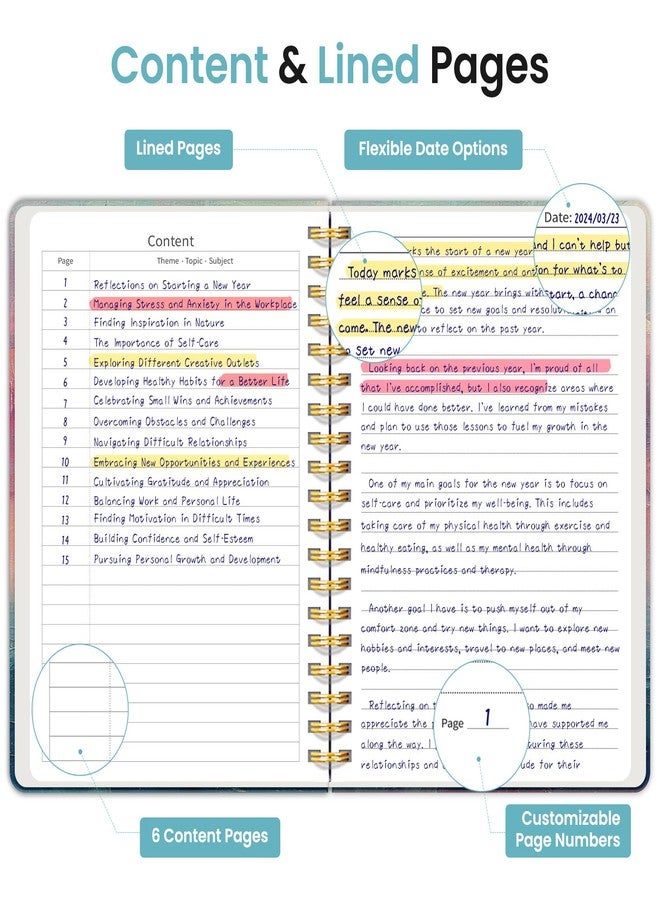 Content & Lined Pages
Lined Pages
Flexible Date Options
Content
Page Theme · Topic · Subject
1 Reflections on Starting a New Year
2 Managing Stress and Anxiety in the Workplace
3 Finding Inspiration in Nature
4 The Importance of Self-Care
5 Exploring Different Creative Outlets
6 Developing Healthy Habits for a Better Life
7 Celebrating Small Wins and Achievements
8 Overcoming Obstacles and Challenges
9 Navigating Difficult Relationships
10 Embracing New Opportunities and Experiences
11 Cultivating Gratitude and Appreciation
12 Balancing Work and Personal Life
13 Finding Motivation in Difficult Times
14 Building Confidence and Self-Esteem
15 Pursuing Personal Growth and Development
Date: 2024/03/23
and I can't help but
ion for what's to
start, a chanc
Today marks
feel a sense o
come. The new
o set new
ks the start of a new year
nse of excitement and ant
e. The new year brings with
ce to set new goals and resolut an
to reflect on the past year.
Looking back on the previous year, I'm proud of all
that I've accomplished, but I also recognize areas where
I could have done better. I've learned from my mistakes
and plan to use those lessons to fuel my growth in the
new year.
One of my main goals for the new year is to focus on
self-care and prioritize my well-being. This includes
taking care of my physical health through exercise and
healthy eating, as well as my mental health through
mindfulness practices and therapy.
Another goal I have is to push myself out of my
comfort zone and try new things. I want to explore new
hobbies and interests, travel to new places, and meet new
people.
Reflecting on t o made me
appreciate the p have supported me
along the way. I turing these
relationships and ude for their
Page 1
6 Content Pages
Customizable
Page Numbers